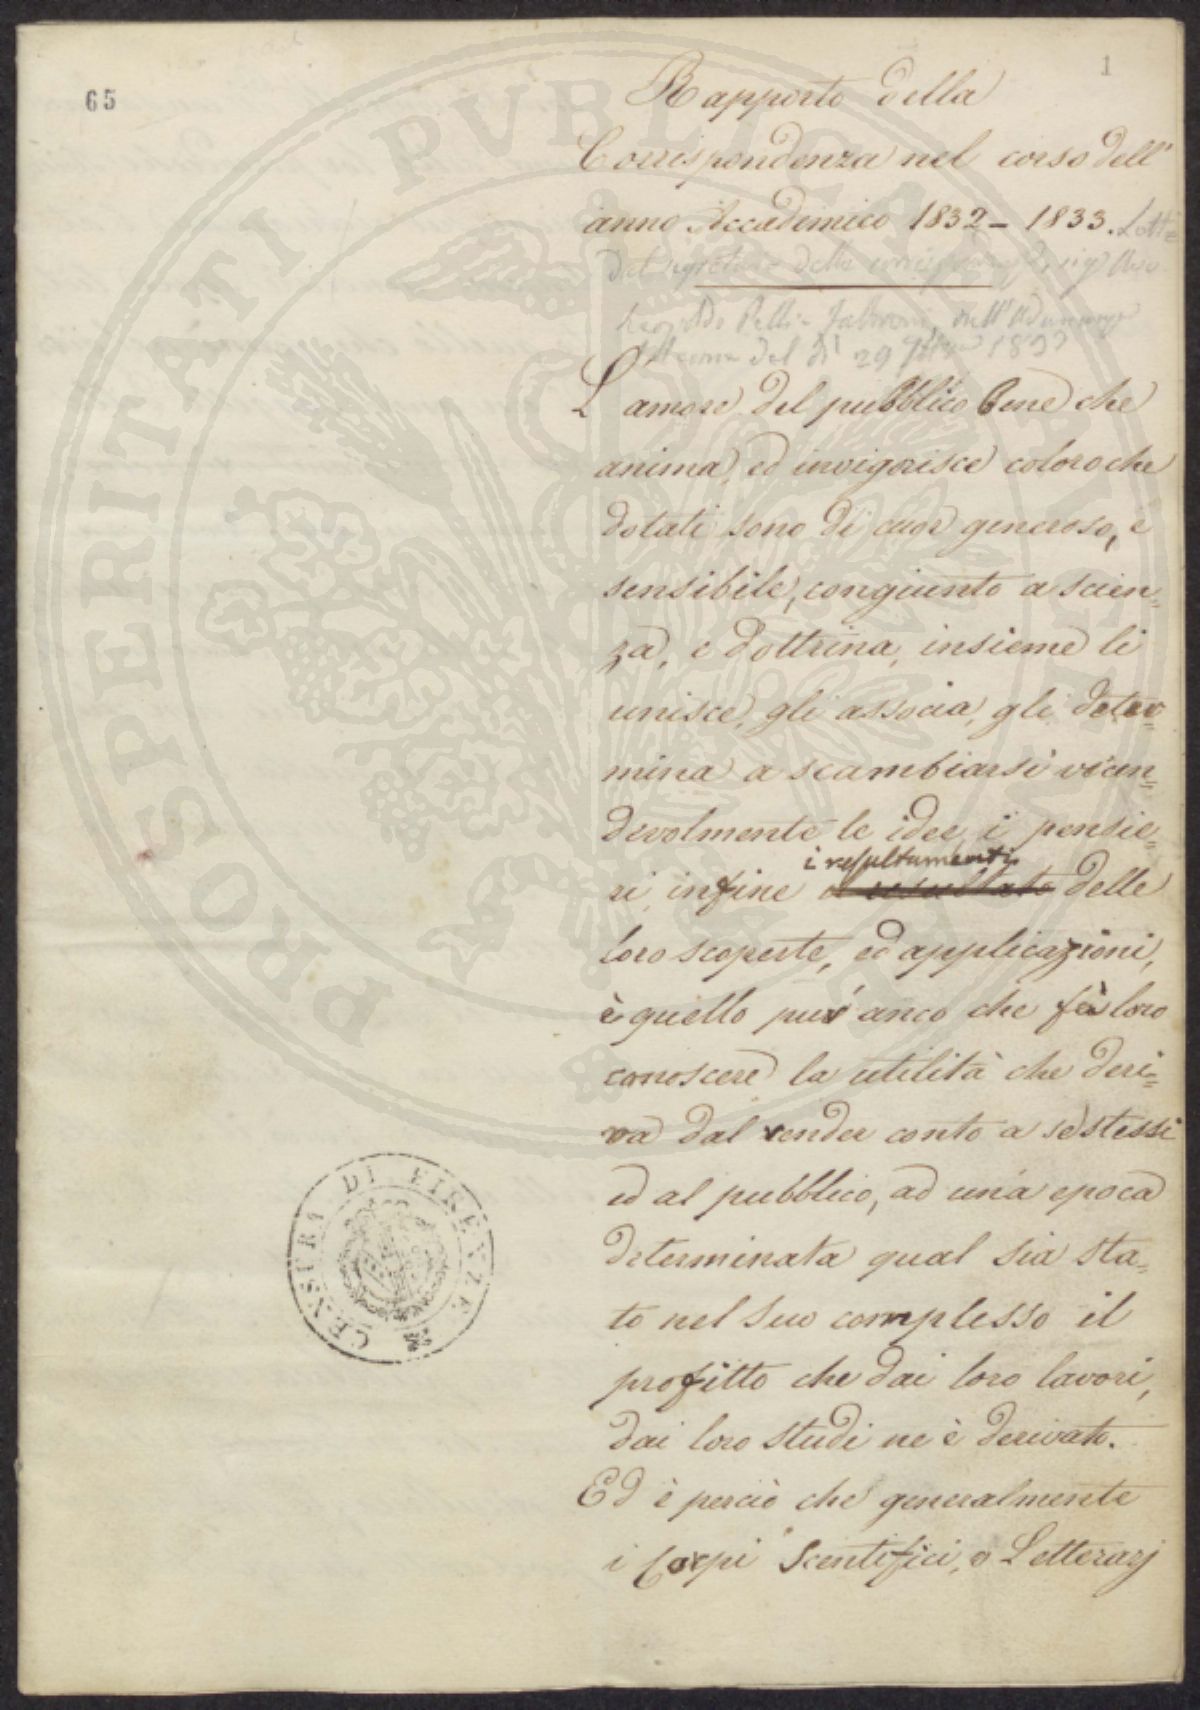 65
1
Rapporto della
Corrispondenza nel corso dell'
anno Accademico 1832 - 1833. Letto
dal segretario delle corrispondenze, sig.
Pelli = Fabbroni, nell'Adunanza
del dì 29 1833
L'amore del pubblico bene che
anima, ed invigorisce coloro che
dotati sono di cuor generoso, e
sensibile, congiunto a scien=
za, e dottrina, insieme li
unisce, gli associa, gli deter=
mina a scambiarsi vicen=
devolmente le idee i pensie=
i resultamenti
ri, infine delle
loro scoperte, ed applicazioni,
è quello pur anco che fà loro
conoscere la utilità che deri=
va dal render conto a se stessi
ed al pubblico, ad una epoca
determinata qual sia sta=
to nel suo complesso il
profitto che dai loro lavori,
dai loro studi ne è derivato.
Ed è perciò che generalmente
i Corpi Scentifici, o Letterarj
CENSURA DI FIRENZE
PROSPERITATI PUBLICAE